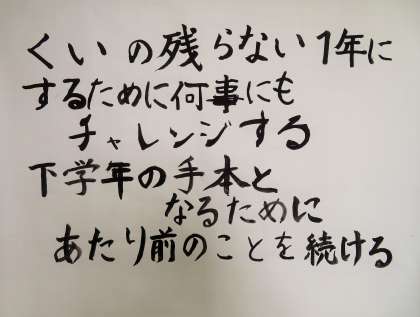 くいの残らない1年に
するために何事にも
チャレンジする
下学年の手本と
なるために
あたり前のことを続ける